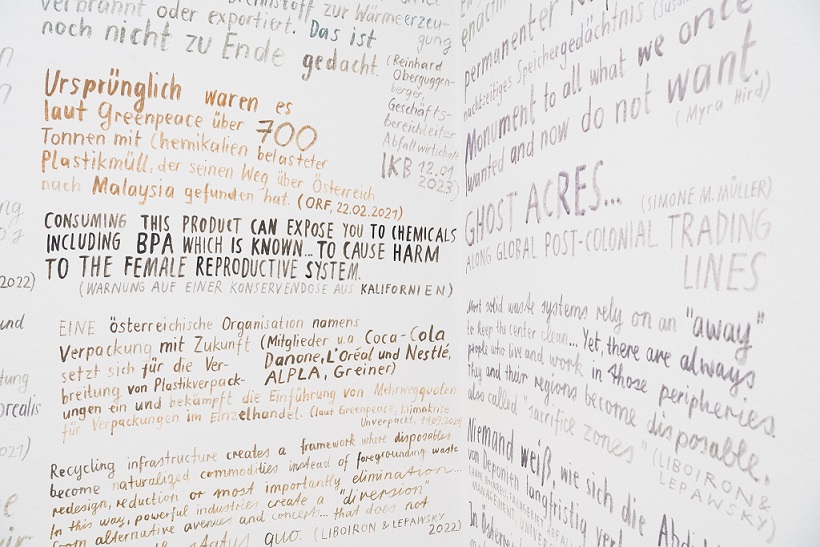 verbrannt oder exportiert. Das ist
zur Wärmeerzeu-
gung
noch nicht zu Ende gedacht.
(Reinhard
Oberguggen-
berger,
Geschäfts-
bereichleiter
Abfallwirtschaft
IKB 12.01
2023)
Ursprünglich waren es
laut Greenpeace über 700
Tonnen mit Chemikalien belasteter
Plastikmüll, der seinen Weg über Österreich
nach Malaysia gefunden hat. (ORF, 22.02.2021)
CONSUMING THIS PRODUCT CAN EXPOSE YOU TO CHEMICALS
INCLUDING BPA WHICH IS KNOWN... TO CAUSE HARM
TO THE FEMALE REPRODUCTIVE SYSTEM.
(WARNUNG AUF EINER KONSERVENDOSE AUS KALIFORNIEN)
EINE österreichische Organisation namens
Verpackung mit Zukunft (Mitglieder u.a Coca-Cola
Danone, L'Oréal und Nestlé,
ALPLA, Greiner)
setzt sich für die Ver-
breitung von Plastikverpack-
ungen ein und bekämpft die Einführung von Mehrwegquoten
für Verpackungen im Einzelhandel. (laut Greenpeace, Klimakrise
Unverpackt,
Recycling infrastructure creates a framework where disposables
become naturalized commodities instead of foregrounding waste
redesign, reduction or most importantly elimination...
In this way, powerful industries create a "diversion"
from alternative avenues and concepts... that does not
status quo. (LIBOIRON & LEPAWSKY
2022)
2022)
und
tung
orealis
2021)
permanenter
nachzeitiges Speichergedächtnis
Monument to all what we once
wanted and now do not want.
(Myra Hird)
GHOST ACRES... (SIMONE M. MÜLLER)
ALONG GLOBAL POST-COLONIAL TRADING
LINES
Most solid waste systems rely on an "away"
to keep the center clean... Yet, there are always
people who live and work in those peripheries.
They and their regions become disposable,
also called "sacrifice zones" (LIBOIRON &
LEPAWSKY)
Niemand weiß, wie sich die
von Deponien langfristig
In Österreich